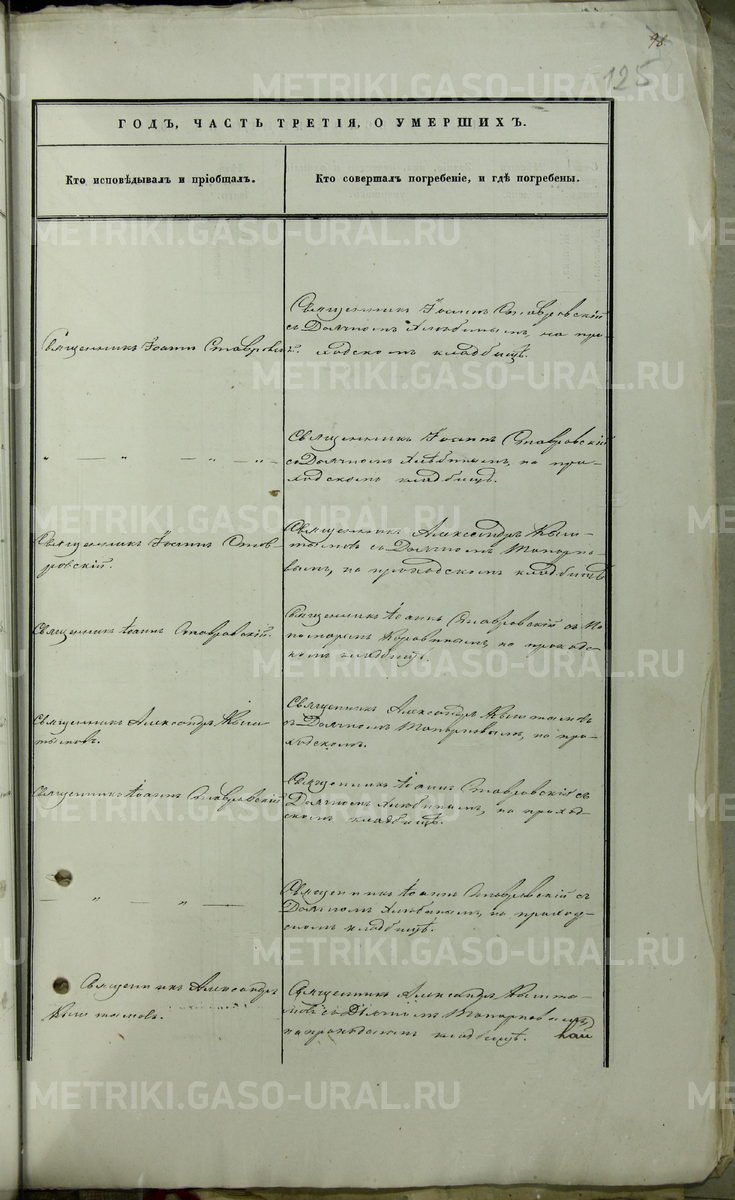 98
125
ГОДЪ, ЧАСТЬ ТРЕТІЯ, О УМЕРШИХЪ.
Кто исповѣдывалъ и пріобщалъ.
Кто совершалъ погребеніе, и гдѣ погребены.
Священникъ Іоаннъ Ставровскій
съ Дьячкомъ на при-
Священникъ Іоаннъ Ставровскій.
ходскомъ кладбищѣ.
Священникъ Іоаннъ Ставровскій
съ Дьячкомъ на при-
„ — „ — „ —
ходскомъ кладбищѣ.
Священникъ Александръ Кыш-
Священникъ Іоаннъ Став-
тымовъ съ Дьячкомъ Топорко-
ровскій.
вымъ, на приходскомъ кладбищѣ
Священникъ Іоаннъ Ставровскій съ По-
Священникъ Іоаннъ Ставровскій.
номаремъ Коровинымъ, на приход-
скомъ кладбищѣ.
Священникъ Александръ Кыштымовъ
Священникъ Александръ Кыш-
съ Дьячкомъ на при-
тымовъ.
ходскомъ.
Священникъ Іоаннъ Ставровскій съ
Священникъ Іоаннъ Ставровскій
Дьячкомъ на приход-
скомъ кладбищѣ.
Священникъ Іоаннъ Ставровскій съ
— „ — „ —
Дьячкомъ на приход-
скомъ кладбищѣ.
Священникъ Александръ
Священникъ Александръ Кышты-
Кыштымовъ.
мовъ съ Дьячкомъ
на приходскомъ кладбищѣ.
METRIKI.GASO-URAL.RU